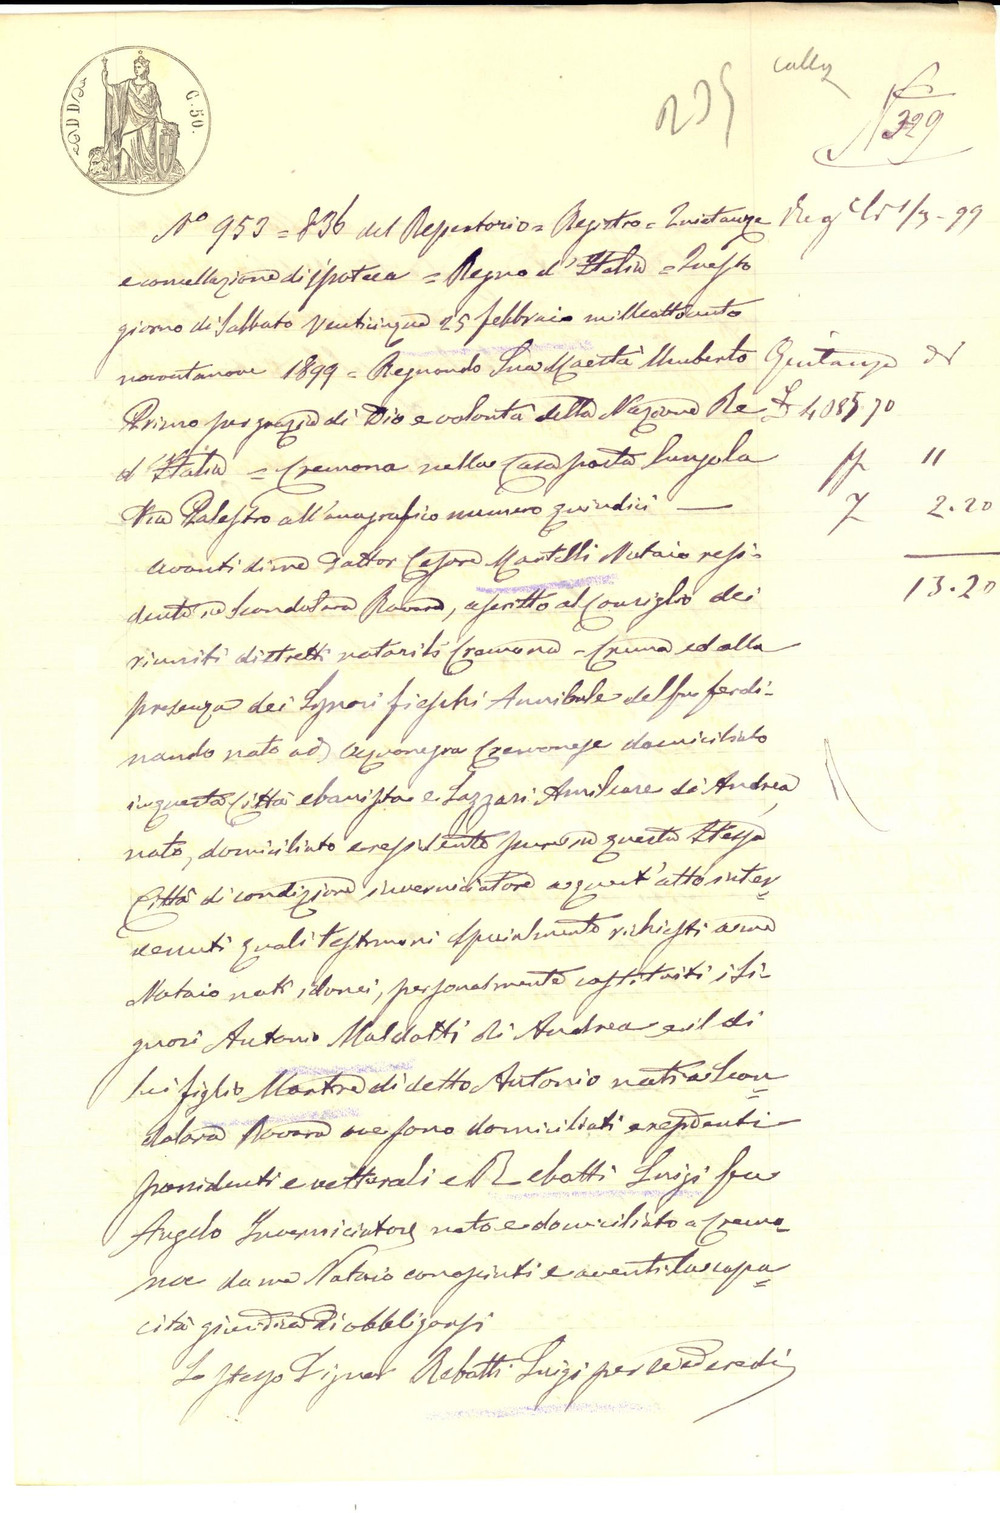 DD
C. 50.
235
N 329
N° 953 = 836 del Repertorio = Registro = Quietanza
Reg 1/3-99
e cancellazione di ipoteca = Regno d'Italia = Questo
giorno di Sabbato venticinque 25 febbraio milleottocento
novantanove 1899 = Regnando Sua Maestà Umberto
Quitanza di
Primo per grazia di Dio e volontà della Nazione Re
£ 4085.70
d'Italia = Cremona nella Casa posta lungo la
11
Via Palestro all'anagrafico numero quindici —
7 2.20
13.20
Avanti di me Dottor Cesare Martelli Notaio resi-
dente in Scandolara Ravara, ascritto al Consiglio dei
riuniti distretti notarili Cremona - Crema ed alla
presenza dei Signori Fieschi Annibale del fu Ferdi-
nando nato ad Acquanegra Cremonese domiciliato
in questa Città ebanista e Lazzari Amilcare di Andrea
nato, domiciliato e residente pure in questa stessa
Città di condizione inverniciatore a quest'atto inter-
venuti quali testimoni specialmente richiesti a me
Notaio noti idonei, personalmente costituiti i Si-
gnori Antonio Maldotti di Andrea e il di
lui figlio di detto Antonio nati a Scan-
dolara Ravara ove sono domiciliati e residenti
possidenti e vetturali e Rebatti Luigi fu
Angelo Inverniciatore nato e domiciliato a Cremo-
na da me Notaio conosciuti e aventi la capa-
cità giuridica di obbligarsi
Lo stesso Signor Rebatti Luigi per sè ed eredi